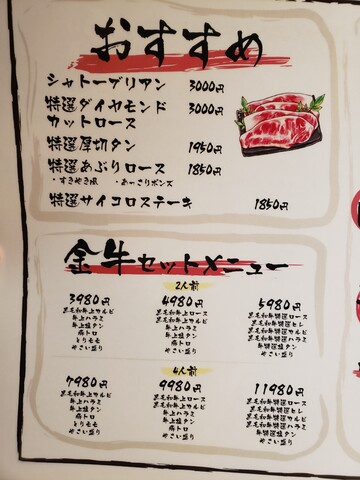 おすすめ
シャトーブリアン 3000円
特選ダイヤモンド 3000円
カットロース
特選厚切タン 1950円
特選あぶりロース 1850円
・すきやき風 ・あーさりポンズ
特選サイコロステーキ 1850円
金牛セットメニュー
2人前
3980円
黒毛和牛上カルビ
牛上ハラミ
牛上塩タン
豚トロ
とりモモ
やさい盛り
4980円
黒毛和牛上ロース
黒毛和牛上カルビ
牛上ハラミ
牛上塩タン
豚トロ
やさい盛り
5980円
黒毛和牛特選ロース
黒毛和牛特選ヒレ
黒毛和牛特選カルビ
牛特選ハラミ
牛特選塩タン
やさい盛り
4人前
7980円
黒毛和牛上カルビ
牛上ハラミ
牛上塩タン
豚トロ
とりモモ
やさい盛り
9980円
黒毛和牛上ロース
黒毛和牛上カルビ
牛上ハラミ
牛上塩タン
豚トロ
やさい盛り
11980円
黒毛和牛特選ロース
黒毛和牛特選ヒレ
黒毛和牛特選カルビ
牛特選ハラミ
牛特選塩タン
やさい盛り